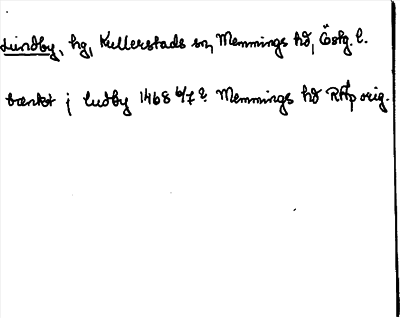 Lundby, hg, Kullerstads sn, Memmings hd, Östg. l.
benkt j ludby 1468 6/7 ? Memmings hd RAp orig.